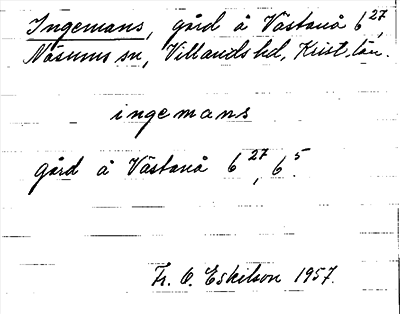 Ingemans, gård å Västanå 6²⁷,
Näsums sn, Villands hd, Krist. län.
ingemans
gård å Västanå 6²⁷, 6⁵.
Fr. O. Eskilson 1957.